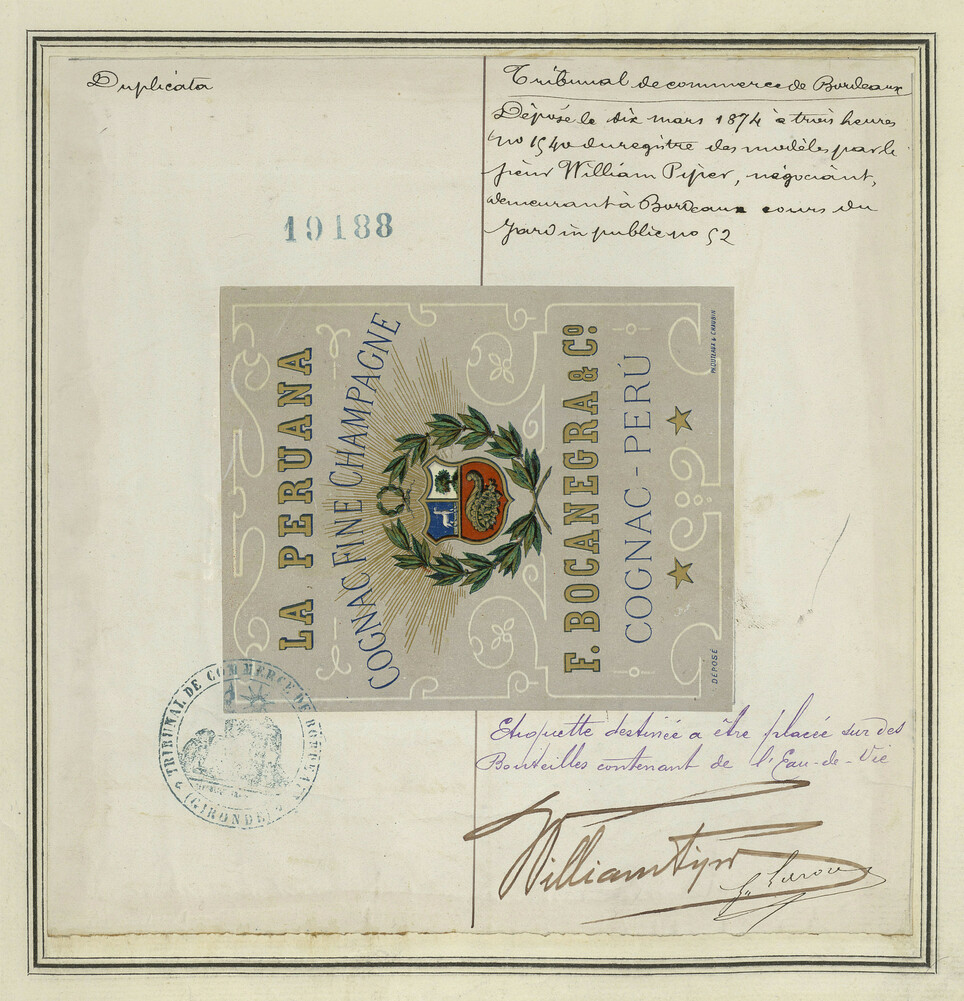 Duplicata
Tribunal de commerce de Bordeaux
Déposé le dix mars 1874 à trois heures
no 1540 du registre des modèles par le
sieur William Piper, négociant,
demeurant à Bordeaux cours du
Jardin public no 52
19188
LA PERUANA
COGNAC FINE CHAMPAGNE
F. BOCANEGRA & Co.
COGNAC - PERÚ
DÉPOSÉ
TRIBUNAL DE COMMERCE DE BORDEAUX
(GIRONDE)
Etiquette destinée a être placée sur des
Bouteilles contenant de l'Eau-de-Vie
William Piper